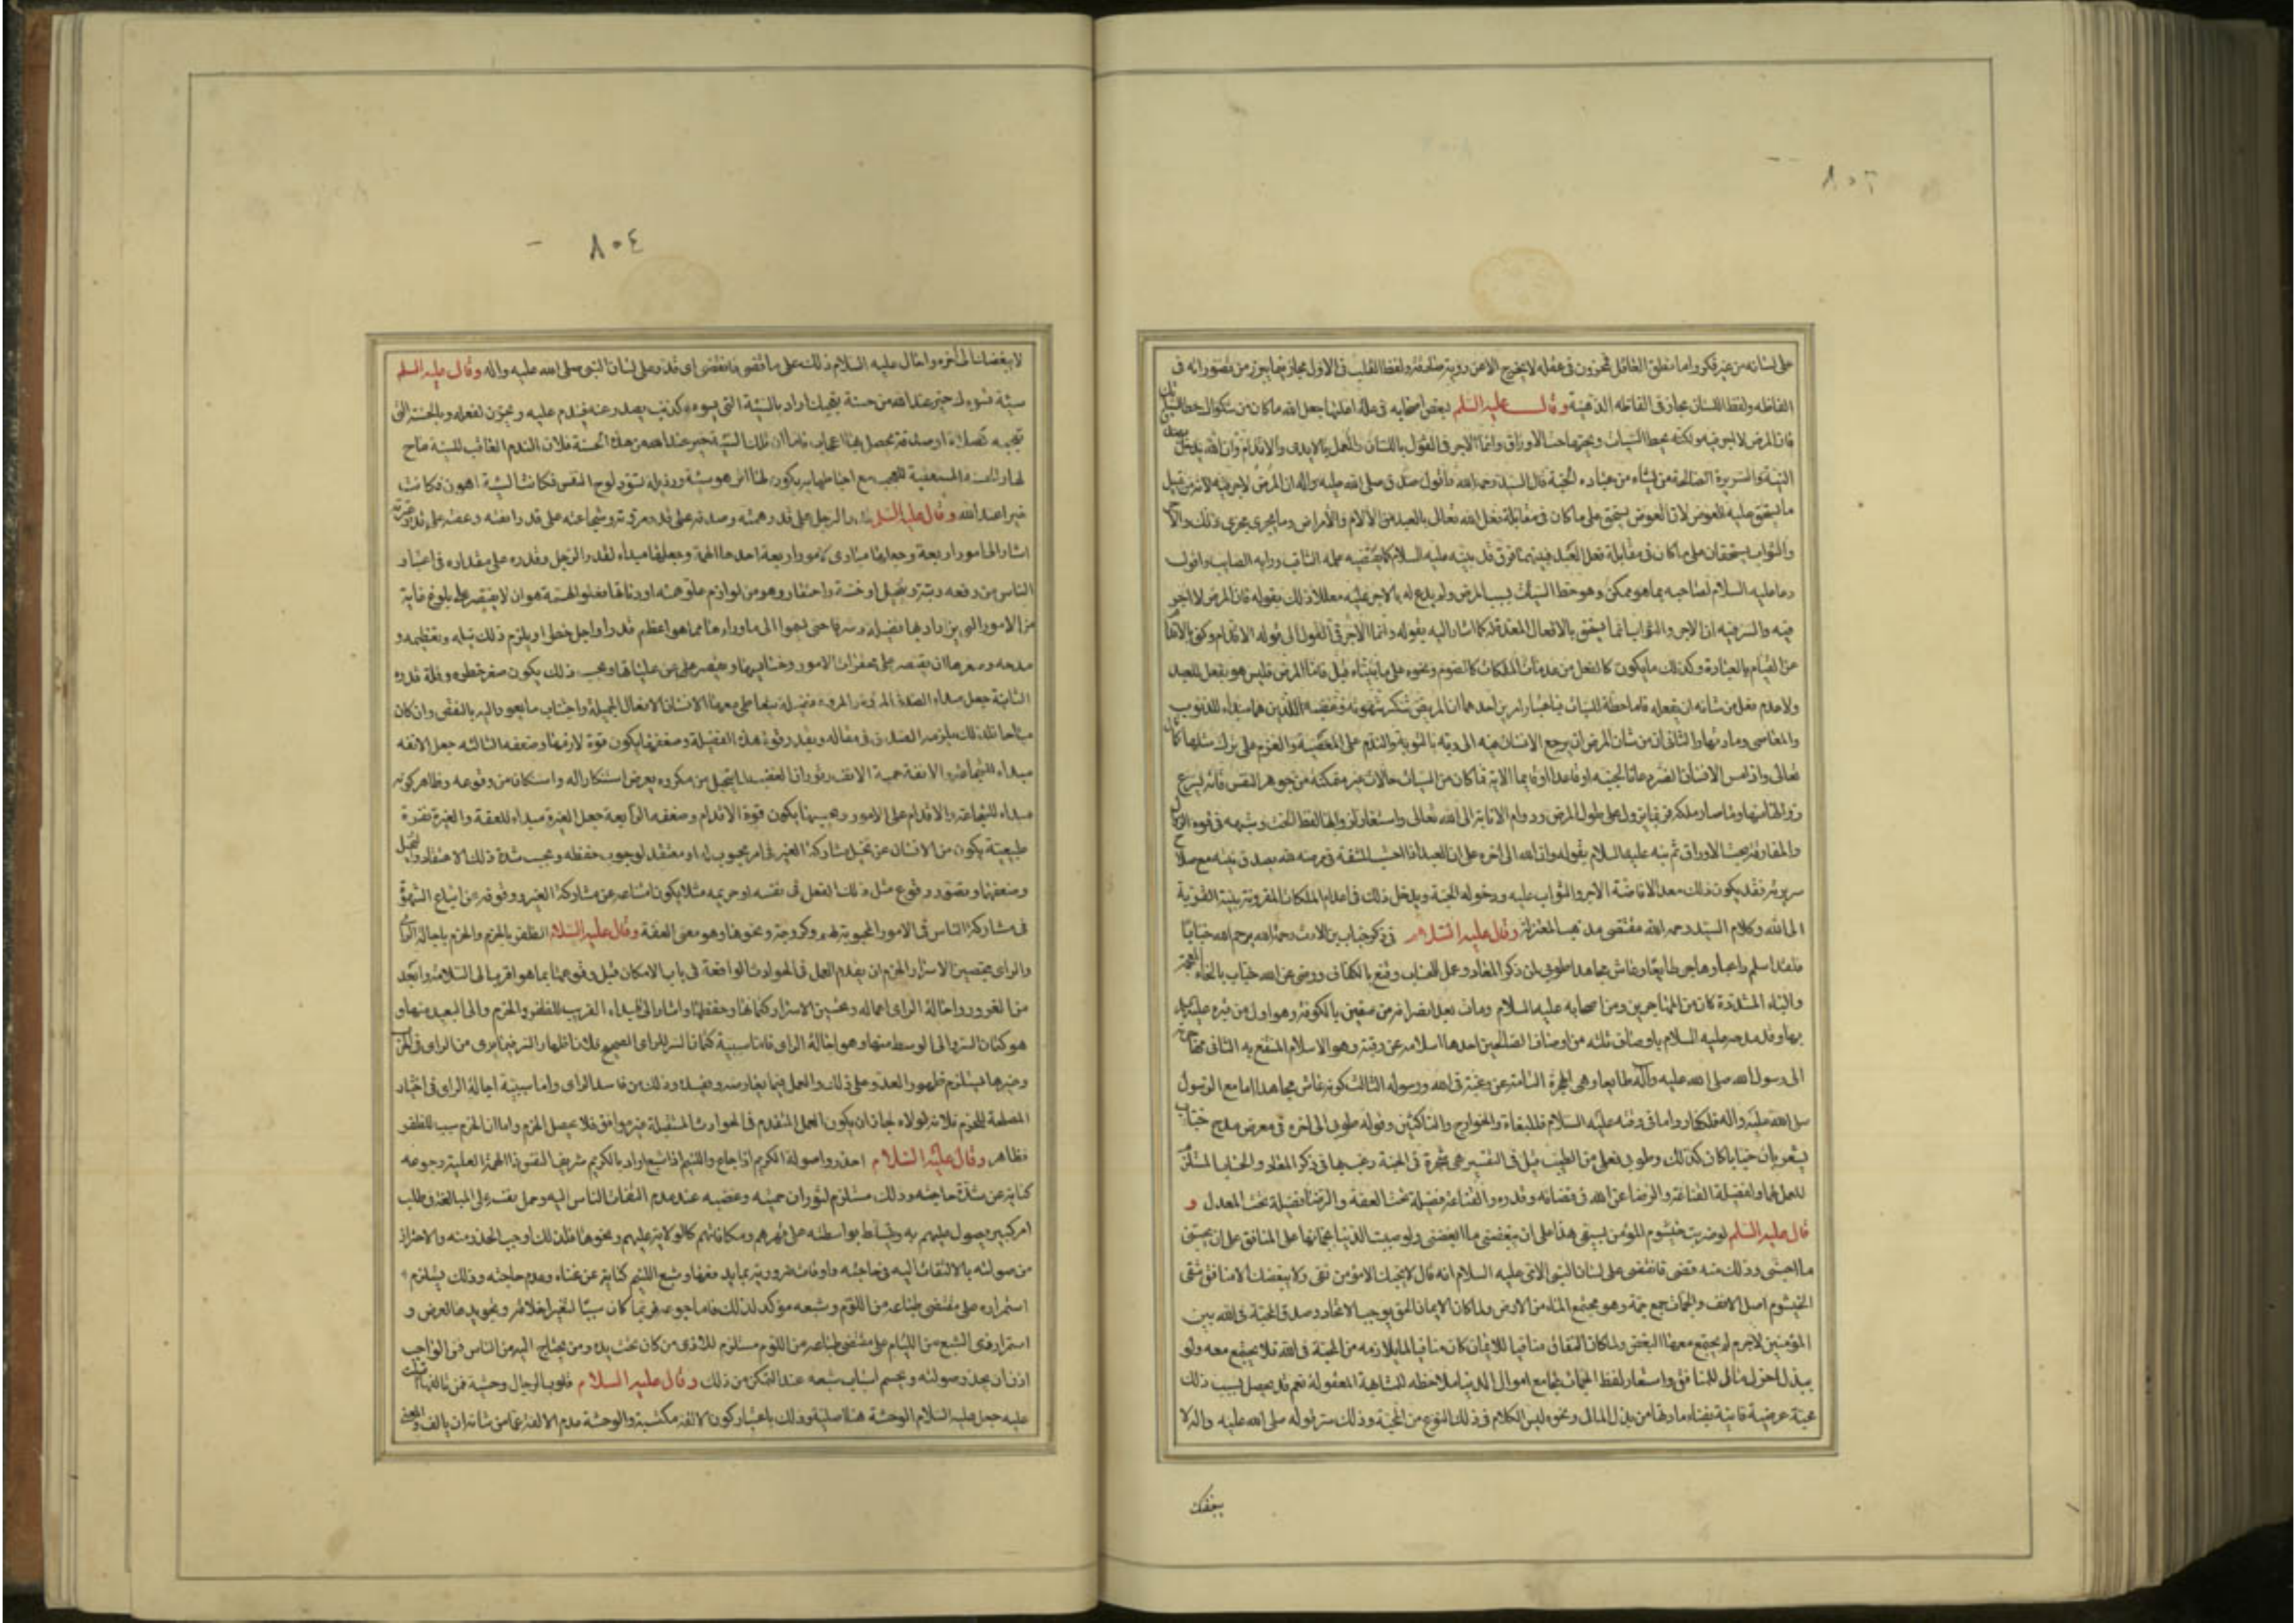 ٨٠٣
على لسانه من غير فكر واما تعلق العاقل فمخزون في عقله لا يخرج الا عن روية ولفظ القلب في الاول مجاز فيما يبرز من تصوراته في
الفاظه ولفظ اللسان مجاز في الفاظه الذهنية وقال عليه السلم لبعض اصحابه في علة اعتلها جعل الله ما كان من شكواك حطا لسيئاتك
فان المرض لا اجر فيه ولكنه يحط السيئات ويحتها حت الاوراق وانما الاجر في القول باللسان والعمل بالايدى والاقدام وان الله يدخل بصدق
النية والسريرة الصالحة من يشاء من عباده الجنة قال السيد رحمه الله واقول صدق صلى الله عليه واله ان المرض لا اجر فيه لانه من قبيل
ما يستحق عليه العوض لان العوض يستحق على ما كان في مقابلة فعل الله تعالى بالعبد من الآلام والأمراض وما يجرى مجرى ذلك والاجر
والثواب يستحقان على ما كان في مقابلة فعل العبد فبينهما فرق قد بينه عليه السلام كما يقتضيه علمه الثاقب ورايه الصايب واقول
دعا عليه السلام لصاحبه بما هو ممكن وهو حط السيئات بسبب المرض ولم يدع له بالاجر عليه معللا ذلك بقوله فان المرض لا اجر
فيه والسر فيه ان الاجر والثواب انما يستحق بالافعال المعدة له كما اشار اليه بقوله وانما الاجر في القول الى قوله الاقدام
عن القيام بالعبادة وكذلك ما يكون كالفعل من عدمات الملكات كالصوم ونحوه على ما بيناه قبل فاما المرض فليس هو بفعل للعبد
ولا عدم فعل من شانه ان يفعله فاما حطه للسيئات فباعتبار امرين احدهما ان المريض تنكسر شهوته وغضبه اللذين هما مبداء للذنوب
والمعاصى ومادتها والثانى ان من شان المرض ان يرجع الانسان فيه الى ربه بالتوبة والندم على المعصية والعزم على ترك مثلها كما قال
تعالى واذا مس الانسان الضر دعانا لجنبه او قاعدا او قايما الاية فما كان من السيئات حالات غير متمكنة من جوهر النفس فانه يسرع
زوالها منها وما صار ملكة فربما يزول على طول المرض ودوام الانابة الى الله تعالى واستعار لزوالها لفظ الحت وشبهه في قوة الزوال
والمفارقة بحت الاوراق ثم نبه عليه السلام بقوله وان الله الى اخره على ان العبد اذا احتسب المشقة في مرضه لله بصدق نيته مع صلاح
سريرته فقد يكون ذلك معدا لافاضة الاجر والثواب عليه ودخوله الجنة ويدخل ذلك في اعدام الملكات المقرونة بنية القربة
الى الله وكلام السيد رحمه الله مقتضى مذهب المعتزلة وقال عليه السلام في ذكر خباب بن الارت رحمه الله يرحم الله خبابا
فلقد اسلم راغبا وهاجر طايعا وعاش مجاهدا طوبى لمن ذكر المعاد وعمل للحساب وقنع بالكفاف ورضى عن الله خباب بالخاء المعجمة
والباء المشددة كان من المهاجرين ومن اصحابه عليه السلام ومات بعد انصرافه من صفين بالكوفة وهو اول من قبره عليه السلم
بها وقد مدحه عليه السلام باوصاف ثلثه من اوصاف الصالحين احدها اسلامه عن رغبة وهو الاسلام المنتفع به الثانى مهاجرته
الى رسول الله صلى الله عليه وآله طايعا وهى الهجرة التامة عن رغبة في الله ورسوله الثالث كونه عاش مجاهدا اما مع الرسول
صلى الله عليه واله فللكفار واما في وقته عليه السلام فللبغاة والخوارج والناكثين وقوله طوبى الى اخره في معرض مدح خباب
يشعر بان خبابا كان كذلك وطوبى فعلى من الطيب قيل في التفسير هى شجرة في الجنة
للعمل لها ولفضيلة القناعة والرضا عن الله في قضائه وقدره والقناعة فضيلة تحت العفة والرضا فضيلة تحت العدل و
قال عليه السلم لو ضربت خيشوم المؤمن بسيفى هذا على ان يبغضنى ما ابغضنى ولو صببت الدنيا بجماتها على المنافق على ان يحبنى
ما احبنى وذلك انه قضى فانقضى على لسان النبى الامى عليه السلام انه قال لا يحبك الا مؤمن تقى ولا يبغضك الا منافق شقى
الخيشوم اصل الانف والجمات جمع جمة وهو مجتمع الماء من الارض ولما كان الايمان الحق يوجب الاتحاد وصدق المحبة في الله بين
المؤمنين لا جرم لم يجتمع معها البغض ولما كان النفاق منافيا للايمان كان منافيا لما يلازمه من المحبة في الله فلا يجتمع معه ولو
ببذل اجزل مال للمنافق واستعار لفظ الجمات لمجامع اموال الدنيا ملاحظه للمشابهة المعقولة نعم قد يحصل بسبب ذلك
محبة عرضية فانية بفناء مادتها من بذل المال ونحوه ليس الكلام في ذلك النوع من المحبة وذلك سر قوله صلى الله عليه واله لا
يبغضك
٨٠٤
لا يبغضك الى آخره واحال عليه السلام ذلك على ما قضى فانقضى اى قدر على لسان النبى صلى الله عليه واله وقال عليه السلم
سيئة تسوءك خير عند الله من حسنة تعجبك اراد بالسيئة التى يسوءه كذنب يصدر عنه فيندم عليه ويحزن لفعله وبالحسنة التى
تعجبه كصلاة او صدقة يحصل بها اعجاب فاما ان تلك السيئة خير عند الله من هذه الحسنة فلان الندم العاقب للسيئة ماح
لها والحسنة المستعقبة للعجب مع احباطها به يكون لها اثر هو سيئة ورذيلة تسود لوح النفس فكانت السيئة اهون فكانت
خيرا عند الله وقال عليه السلم قدر الرجل على قدر همته وصدقه على قدر مروته وشجاعته على قدر انفته وعفته على قدر غيرته
اشار الى امور اربعة وجعلها مبادى لامور اربعة احدها الهمة وجعلها مبداء لقدر الرجل وقدره على مقداره في اعتبار
الناس من رفعه وتبجيل او خسة واحتقار وهو من لوازم علو همته او دناتها فعلو الهمة هو ان لا يقتصر على بلوغ غاية
من الامور التى يزداد بها فضيلة وشرفا حتى يسموا الى ما وراءها مما هو اعظم قدرا واجل خطرا ويلزم ذلك نبله وتعظيمه و
مدحه وصغرها ان يقتصر على محقرات الامور وخسايسها ويقصر عن علياتها وبحسب ذلك يكون صغر خطره وقلة قدره
الثانية جعل مبداء الصدق المروة والمروة فضيلة
مبداء للشجاعة والانفة حمية الانف وثوران الغضب لما يتخيل من مكروه يعرض استنكارا له واستنكافا من وقوعه وظاهر كونه
مبداء للشجاعة والاقدام على الامور وبحسبها يكون قوة الاقدام وضعفه الرابعة جعل الغيرة مبداء للعفة والغيرة نفرة
طبيعية يكون من الانسان عن تخيل مشاركة الغير في امر محبوب له او معتقد لوجوب حفظه وبحسب شدة ذلك الاعتقاد والتخيل
وضعفها وتصور وقوع مثل ذلك الفعل في نفسه او حريمه مثلا يكون امتناعه عن مشاركة الغير ووقوفه عن اتباع الشهوة
في مشاركة الناس في الامور المحبوبة لهم وكزوجة ونحوها وهو معنى العفة وقال عليه السلام الظفر بالحزم والحزم باجالة الراى
والراى بتحصين الاسرار الحزم ان يقدم العمل في الحوادث الواقعة في باب الامكان قبل وقوعها بما هو اقرب الى السلامة وابعد
من الغرور واجالة الراى اعماله وتحصين الاسرار كتمانها وحفظها واشار الى المبداء القريب للظفر والحزم والى البعيد منها و
هو كتمان السر والى الوسط منها وهو اجالة الراى فاما سببية كتمان السر للراى الصحيح فلان اظهار السر فيما يرى من الراى في الحرب
وغيرها يستلزم ظهور العدو على ذلك والعمل فيما يعارضه ويفسده وذلك من فاسد الراى واما سببية اجالة الراى في اختيار
المصلحة للحزم فلانه لولاه لجاز ان يكون العمل المتقدم في الحوادث المستقبلة غير موافق فلا يحصل الحزم واما ان الحزم سبب للظفر
فظاهر وقال عليه السلام احذروا صولة الكريم اذا جاع واللئيم اذا شبع اراد بالكريم شريف النفس ذا الهمة العلية وجوعه
كناية عن شدة حاجته وذلك مستلزم لثوران حميته وغضبه عند عدم التفات الناس اليه وحمل نفسه على المبالغة في طلب
امر كبير يصول عليهم به ويتسلط بواسطته على قهرهم ومكافاتهم كالولاية عليهم ونحوها فلذلك اوجب الحذر منه والاحتراز
من صولته بالالتفات اليه في حاجته واوقات ضرورته بما يدفعها وشبع اللئيم كناية عن غناه وعدم حاجته وذلك يستلزم
استمراره على مقتضى طباعه من اللؤم وشبعه مؤكد لذلك فاما جوعه فربما كان سببا لتغير اخلاقه وتجويدها لغرض و
استمرار ذى الشبع من اللئام على مقتضى طباعه من اللؤم مستلزم للاذى من كان تحت يده ومن يحتاج اليه من الناس فمن الواجب
اذن ان يحذر صولته ويحسم اسباب شبعه عند التمكن من ذلك وقال عليه السلام قلوب الرجال وحشية فمن تالفها اقبلت
عليه جعل عليه السلام الوحشة هنا اصلية وذلك باعتبار كون الالفة مكتسبة والوحشة عدم الالفة عما من شانه ان يالف